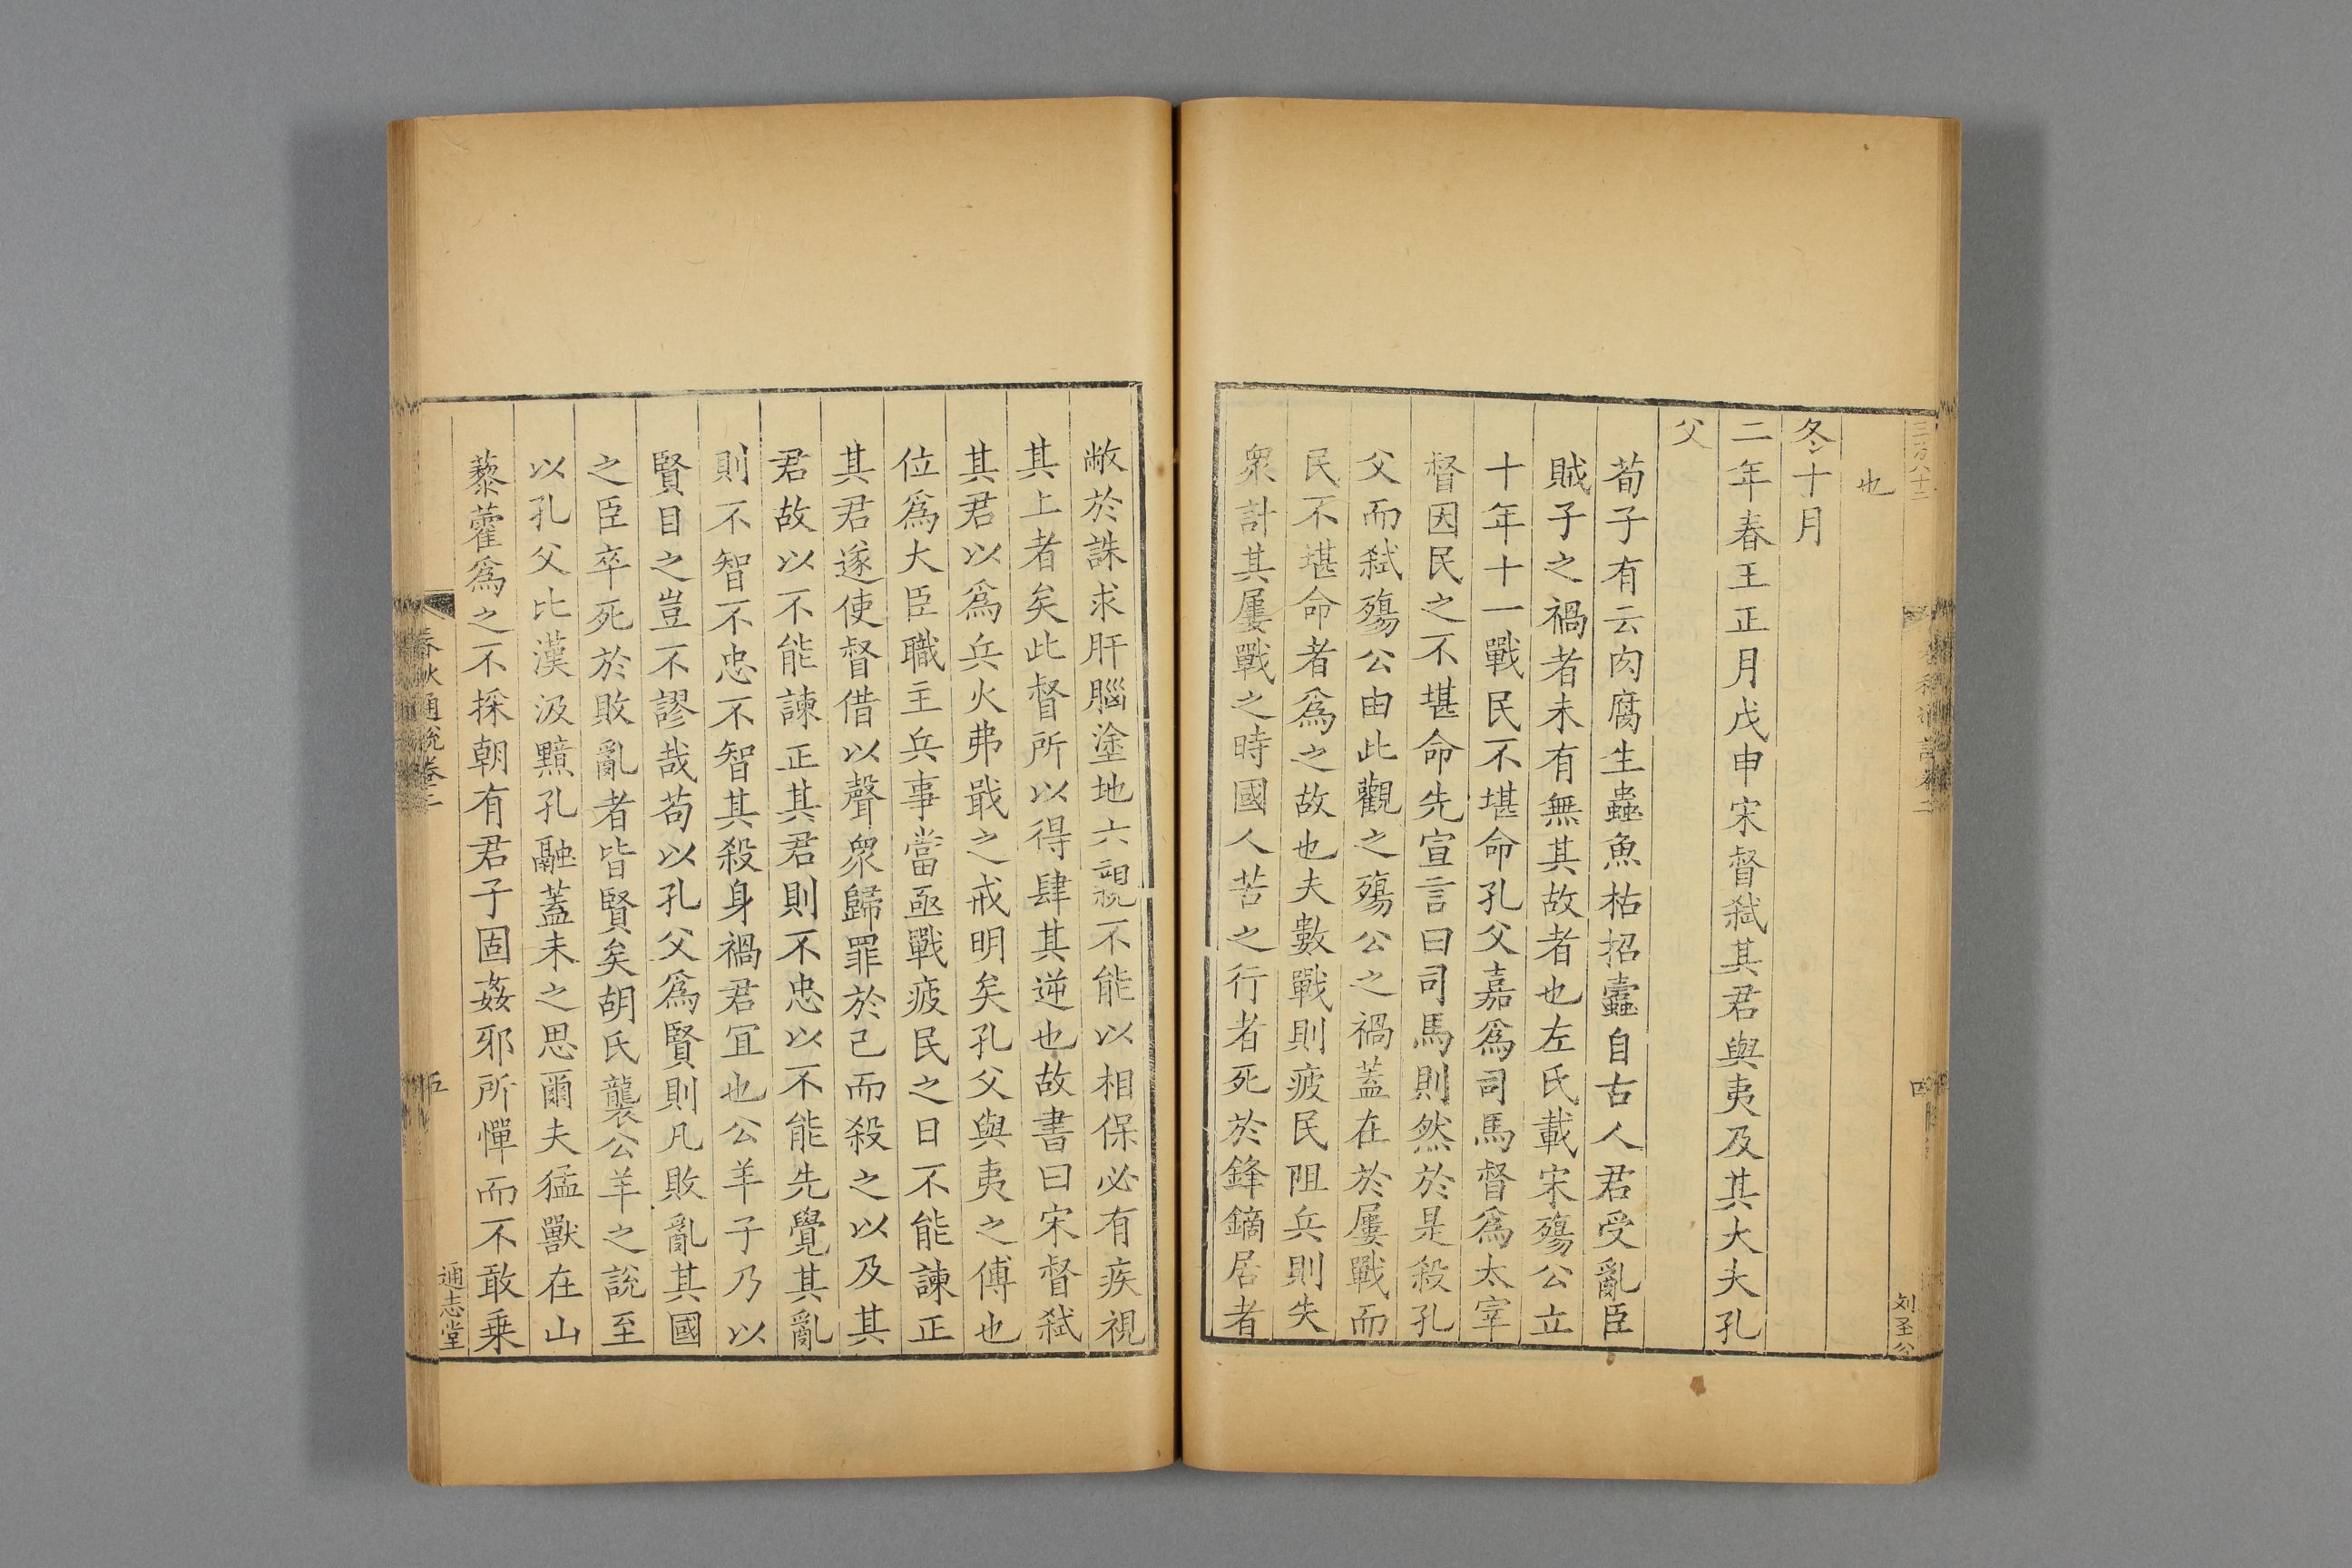 也
冬十月
二年春王正月戊申宋督弑其君與夷及其大夫孔
父
荀子有云肉腐生蟲魚枯招蠹自古人君受亂臣
賊子之禍者未有無其故者也左氏載宋殤公立
十年十一戰民不堪命孔父嘉爲司馬督爲太宰
督因民之不堪命先宣言曰司馬則然於是殺孔
父而弑殤公由此觀之殤公之禍蓋在於屢戰而
民不堪命者爲之故也夫數戰則疲民阻兵則失
衆計其屢戰之時國人苦之行者死於鋒鏑居者
敝於誅求肝腦塗地六親不能以相保必有疾視
其上者矣此督所以得肆其逆也故書曰宋督弑
其君以爲兵火弗戢之戒明矣孔父與夷之傅也
位爲大臣職主兵事當亟戰疲民之日不能諫正
其君遂使督借以聲衆歸罪於己而殺之以及其
君故以不能諫正其君則不忠以不能先覺其亂
則不智不忠不智其殺身禍君冝也公羊子乃以
賢目之豈不謬哉苟以孔父爲賢則凡敗亂其國
之臣卒死於敗亂者皆賢矣胡氏襲公羊之說至
以孔父比漢汲黯孔融蓋未之思爾夫猛獸在山
藜藿爲之不採朝有君子固姦邪所憚而不敢乗
春秋通說卷二
五
通志堂